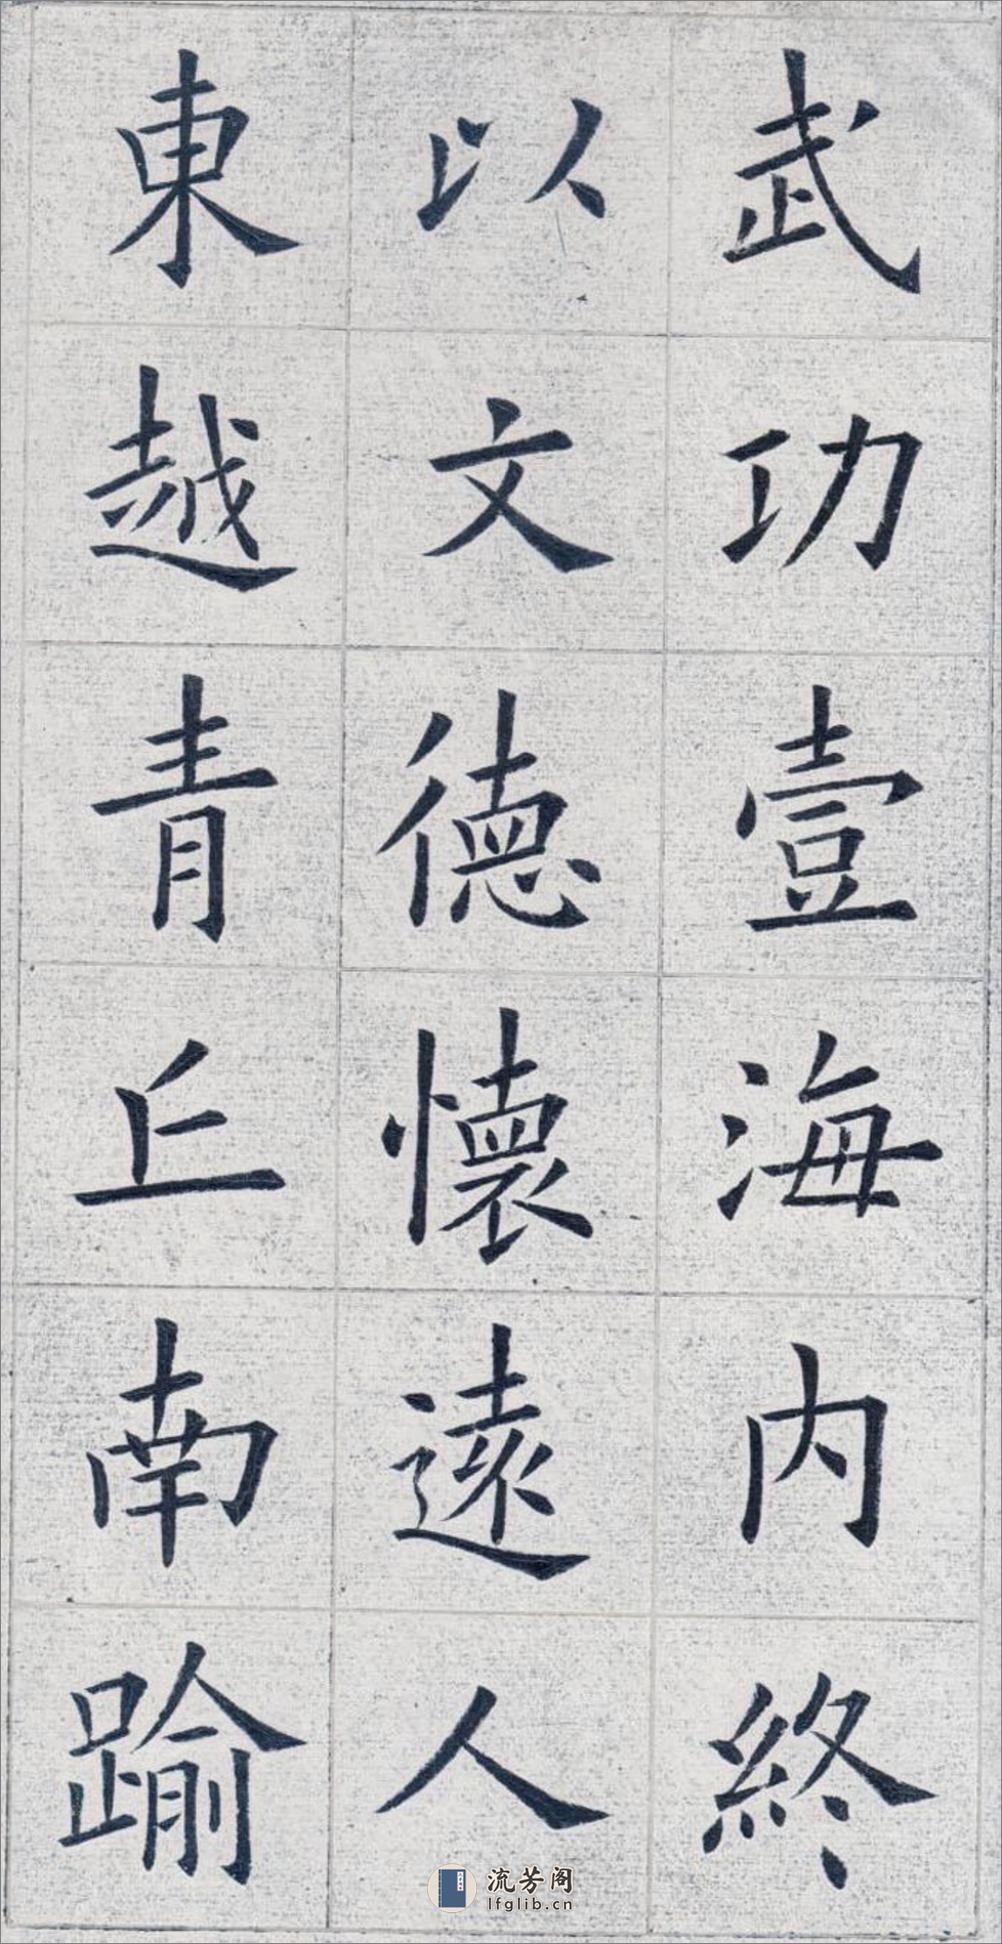 武功壹海内終
以文德懷遠人
東越青丘南踰
流芳阁
lfglib.cn